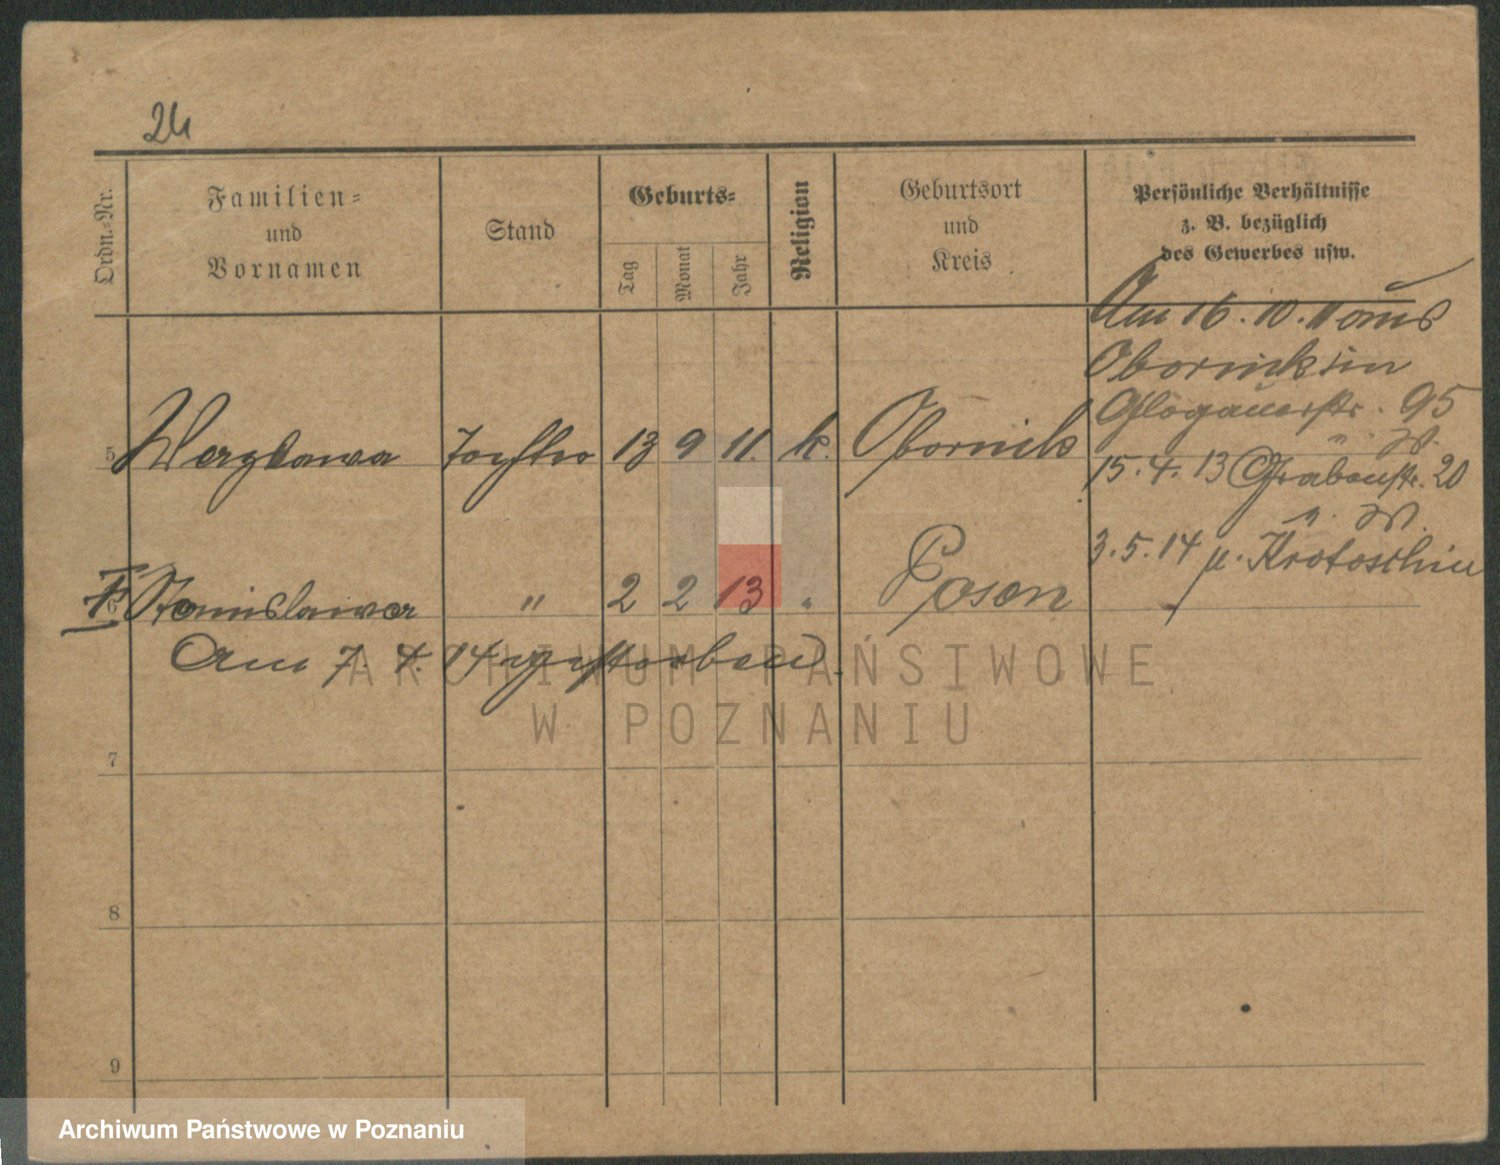 24
Ordn.-Nr.
Familien-
und
Vornamen
Stand
Geburts-
Tag
Monat
Jahr
Religion
Geburtsort
und
Kreis
Persönliche Verhältnisse
z. B. bezüglich
des Gewerbes usw.
Am 16.10.11 aus
Obornick in
Glogauerstr. 95
5 Tochter 13 9 11. k. Obornik
15.4.13 Grabenstr. 20
3.5.14 n. Krotoschin
6 Stanislawa " 2 2 13 " Posen
Am 7.4.14 gestorben.
7
8
9
ARCHIWUM PAŃSTWOWE
W POZNANIU
Archiwum Państwowe w Poznaniu